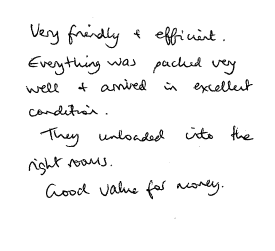 Very friendly + efficient.
Everything was packed very
well + arrived in excellent
condition.
They unloaded into the
right rooms.
Good value for money.